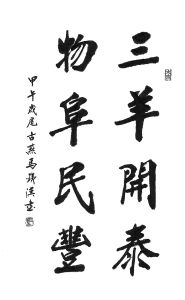 三羊開泰
物阜民豐
甲午歲尾古燕馬